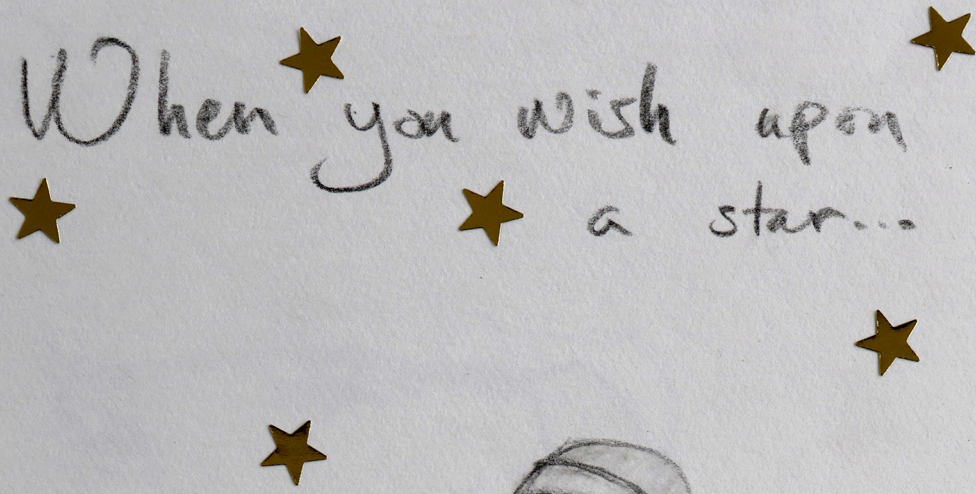 When you wish upon
a star...